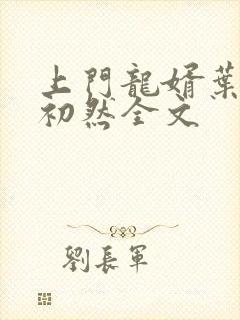 上門龍婿葉
初然全文
劉長軍